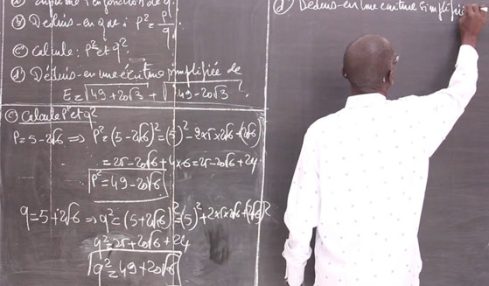 b) Déduis-en q et : P² = P/q
c) Calcule : P² et q².
d) Déduis-en une écriture simplifiée de
E = √49+20√3 + √49-20√3 .
c) Calcule P² et q²
P = 5-2√6 ⟹ P² = (5-2√6)² = (5)² - 2x5x2√6 + (2√6)²
= 25-20√6 + 4x6 = 25-20√6 + 24
P² = 49-20√6
q = 5+2√6 ⟹ q² = (5+2√6)² = (5)² + 2x5x2√6 + (2√6)²
q² = 25+20√6 + 24
q² = 49+20√6
d) Déduis-en une écriture simplifiée